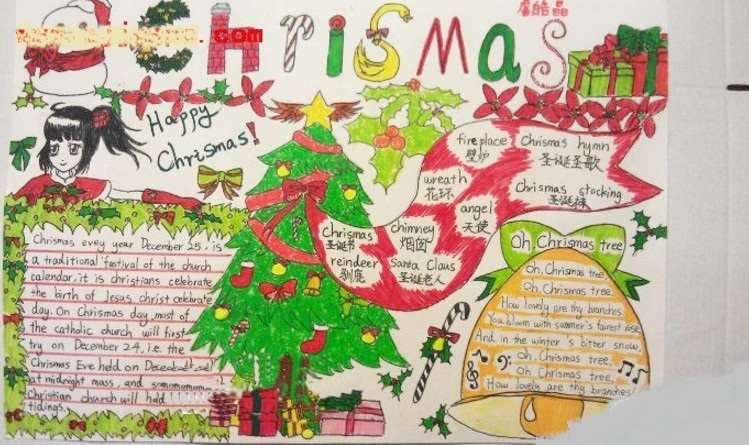 Chrismas
Happy
Chrismas!
fireplace
壁炉
Chrismas hymn
圣诞圣歌
wreath
花环
Chrismas stocking
圣诞袜
angel
天使
chrismas
圣诞节
chimney
烟囱
reindeer
驯鹿
Santa Claus
圣诞老人
Chrismas evey year December 25, is
a traditional festival of the church
calendar, it is christians celebrate
the birth of Jesus christ celebrate
day. On Chrismas day most of
the catholic church will first
try on December 24, i.e. the
Chrismas Eve held on
at midnight mass, and
Christian church will held
tidings.
Oh, Chrismas tree
Oh, Chrismas tree
Oh, Chrismas tree,
How lovely are thy branches
You bloom with summer's fairest rose
And in the winter's bitter snow,
Oh, Chrismas tree,
Oh, Chrismas tree,
How lovely are thy branches!